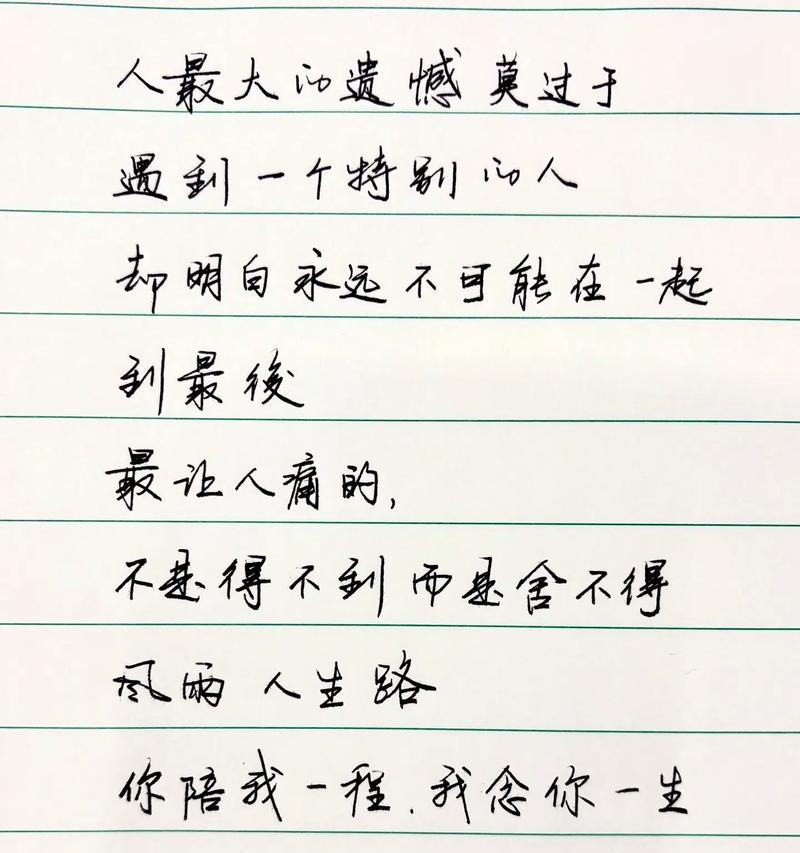 人最大的遗憾莫过于
遇到一个特别的人
却明白永远不可能在一起
到最後
最让人痛的,
不是得不到而是舍不得
风雨人生路
你陪我一程.我念你一生